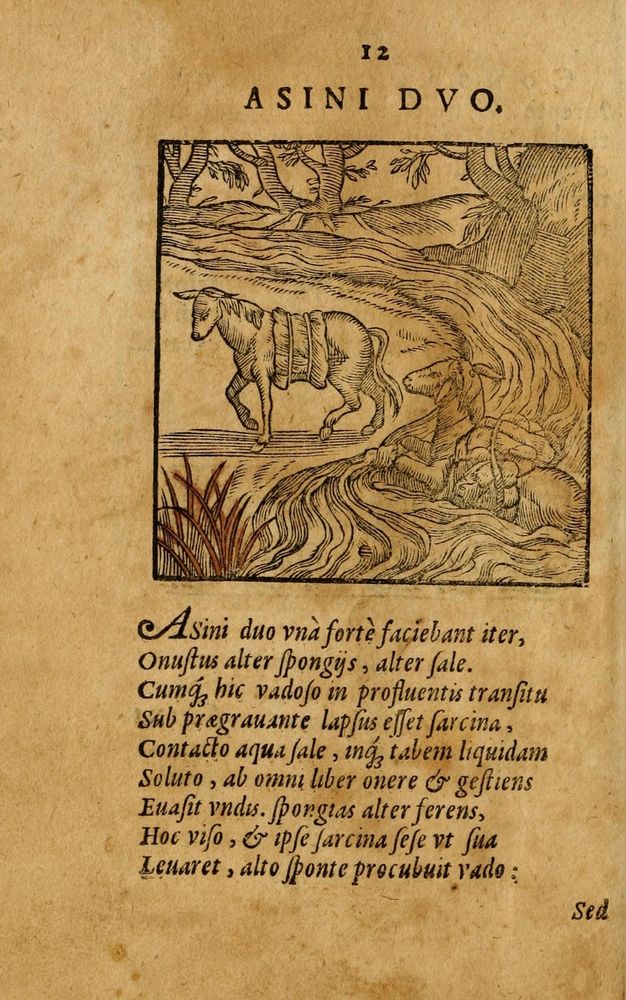 12
ASINI DVO.
ASini duo vnà fortè faciebant iter,
Onuſtus alter ſpongijs, alter ſale.
Cumq́ꝫ hic vadoſo in profluentis tranſitu
Sub prægrauante lapſus eſſet ſarcina,
Contacto aqua ſale, inq́ꝫ tabem liquidam
Soluto, ab omni liber onere & geſtiens
Euaſit vndis. ſpongias alter ferens,
Hoc viſo, & ipſe ſarcina ſeſe vt ſua
Leuaret, alto ſponte procubuit vado:
Sed